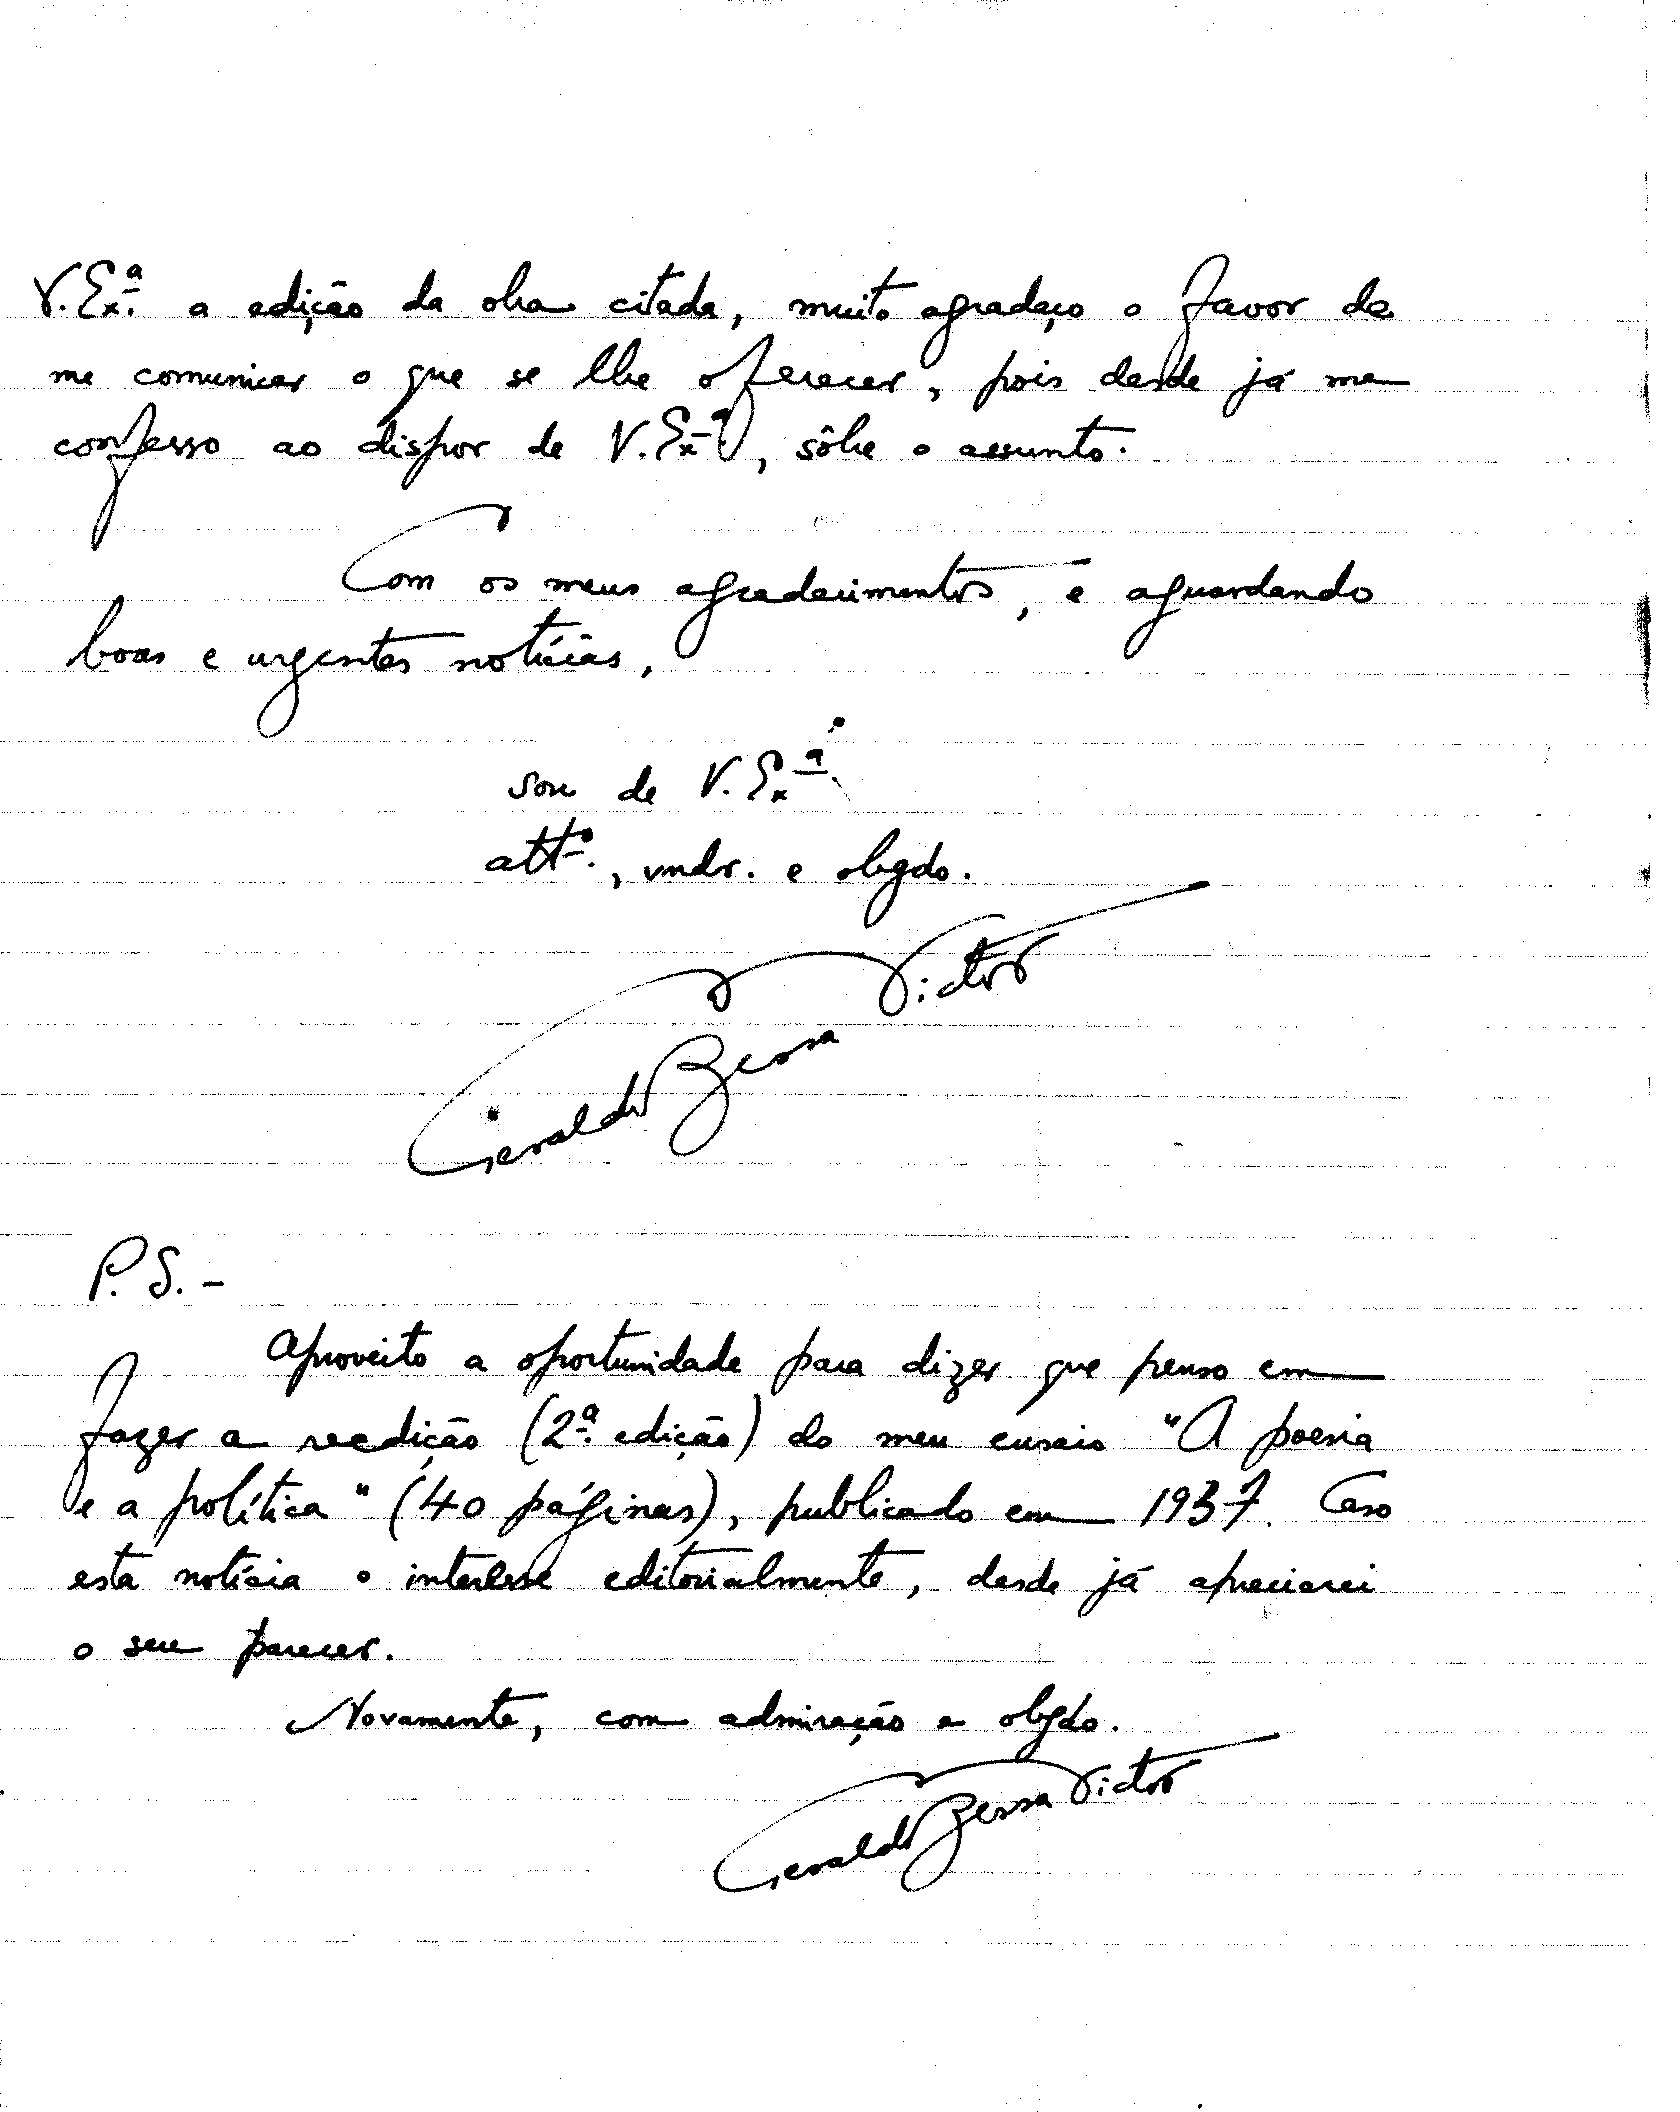 V. Ex.ª a edição da obra citada, muito agradeço o favor de
me comunicar o que se lhe oferecer, pois desde já me
confesso ao dispor de V. Ex.ª, sôbre o assunto.
Com os meus agradecimentos, e aguardando
boas e urgentes notícias,
sou de V. Ex.ª
attº., vndr. e obgdo.
Geraldo Bessa Victor
P. S. -
Aproveito a oportunidade para dizer que penso em
fazer a reedição (2.ª edição) do meu ensaio "A poesia
e a política" (40 páginas), publicado em 1937. Caso
esta notícia o interesse editorialmente, desde já apreciarei
o seu parecer.
Novamente, com admiração e obgdo.
Geraldo Bessa Victor